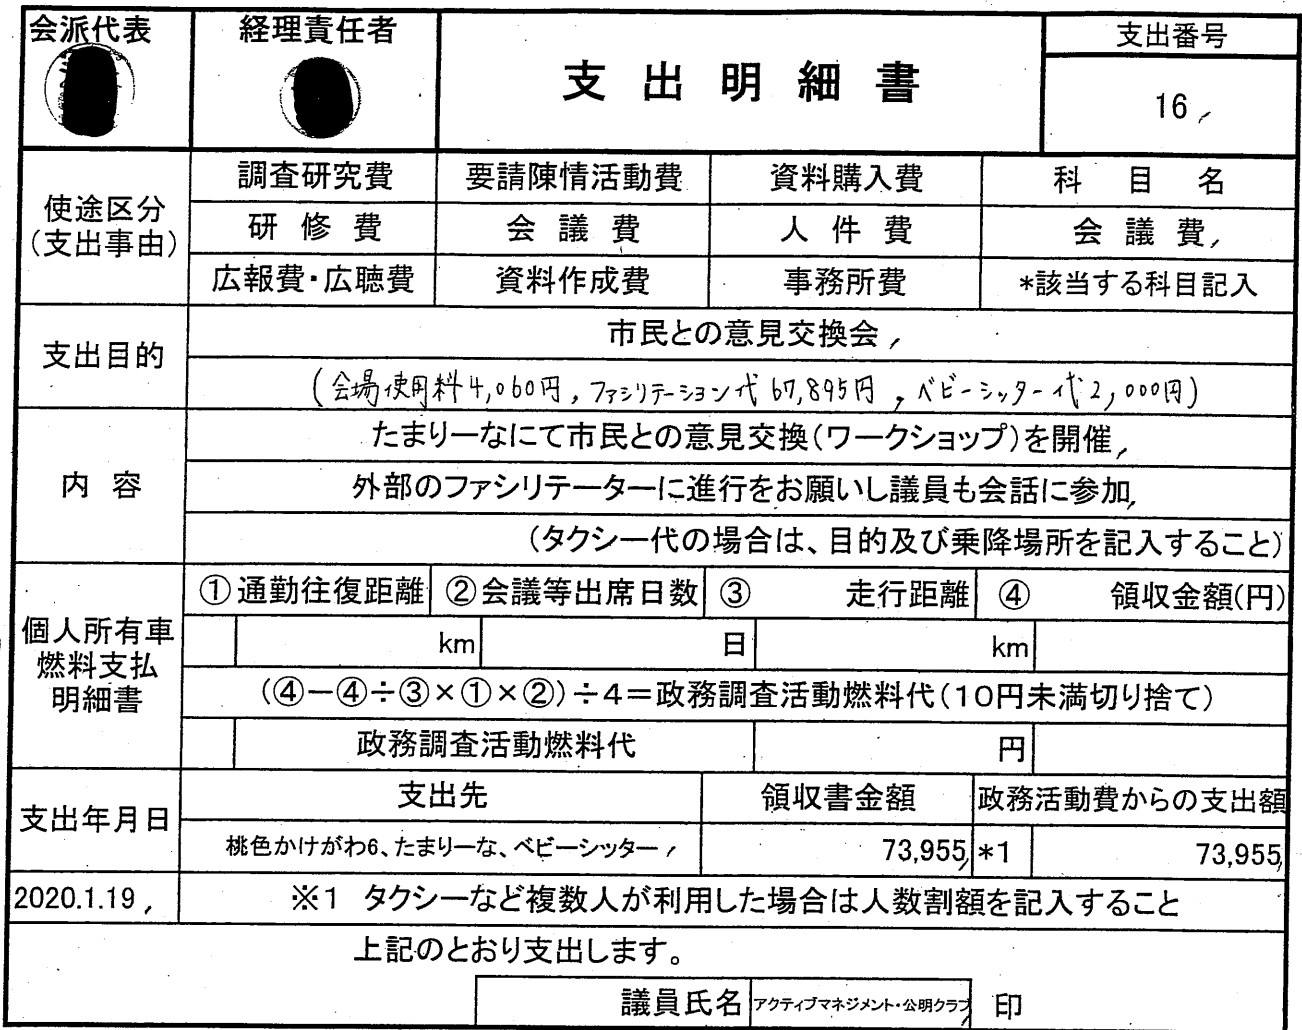 会派代表
経理責任者
支出明細書
支出番号
16
使途区分
(支出事由)
調査研究費 要請陳情活動費 資料購入費 科目名
研修費 会議費 人件費 会議費
広報費・広聴費 資料作成費 事務所費 *該当する科目記入
支出目的
市民との意見交換会
(会場使用料4,060円,ファシリテーション代67,895円,ベビーシッター代2,000円)
内容
たまりーなにて市民との意見交換(ワークショップ)を開催
外部のファシリテーターに進行をお願いし議員も会話に参加
(タクシー代の場合は、目的及び乗降場所を記入すること)
個人所有車
燃料支払
明細書
①通勤往復距離 ②会議等出席日数 ③ 走行距離 ④ 領収金額(円)
km 日 km
(④－④÷③×①×②)÷4＝政務調査活動燃料代(10円未満切り捨て)
政務調査活動燃料代 円
支出年月日
支出先 領収書金額 政務活動費からの支出額
桃色かけがわ6、たまりーな、ベビーシッター 73,955 *1 73,955
2020.1.19
※1 タクシーなど複数人が利用した場合は人数割額を記入すること
上記のとおり支出します。
議員氏名 アクティブマネジメント・公明クラブ 印